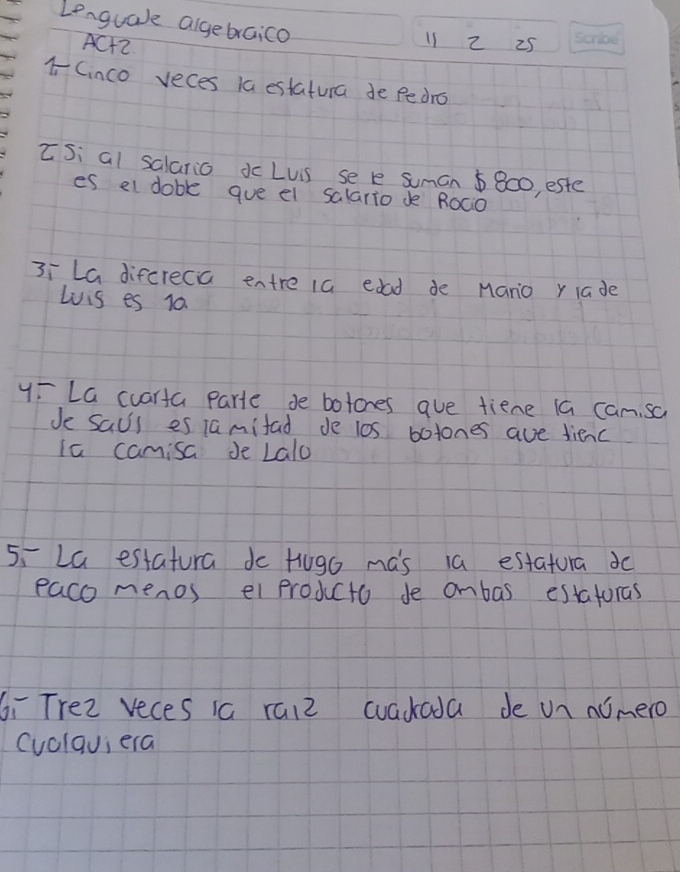 Lenguale algebraico
ACT2
11 2 25
Scribe
1.- Cinco veces la estatura de Pedro
2 Si al salario de Luis se le suman $ 800, este
es el doble que el salario de Rocio
3.- La difcrecia entre la edad de Mario y la de
Luis es 10
4.- La cuarta parte de botones que tiene la camisa
de saúl es la mitad de los botones que tiene
la camisa de Lalo
5.- La estatura de Hugo más la estatura de
Paco menos el Producto de ambas estaturas
6.- Trez veces la raiz cuadrada de un número
cualquiera